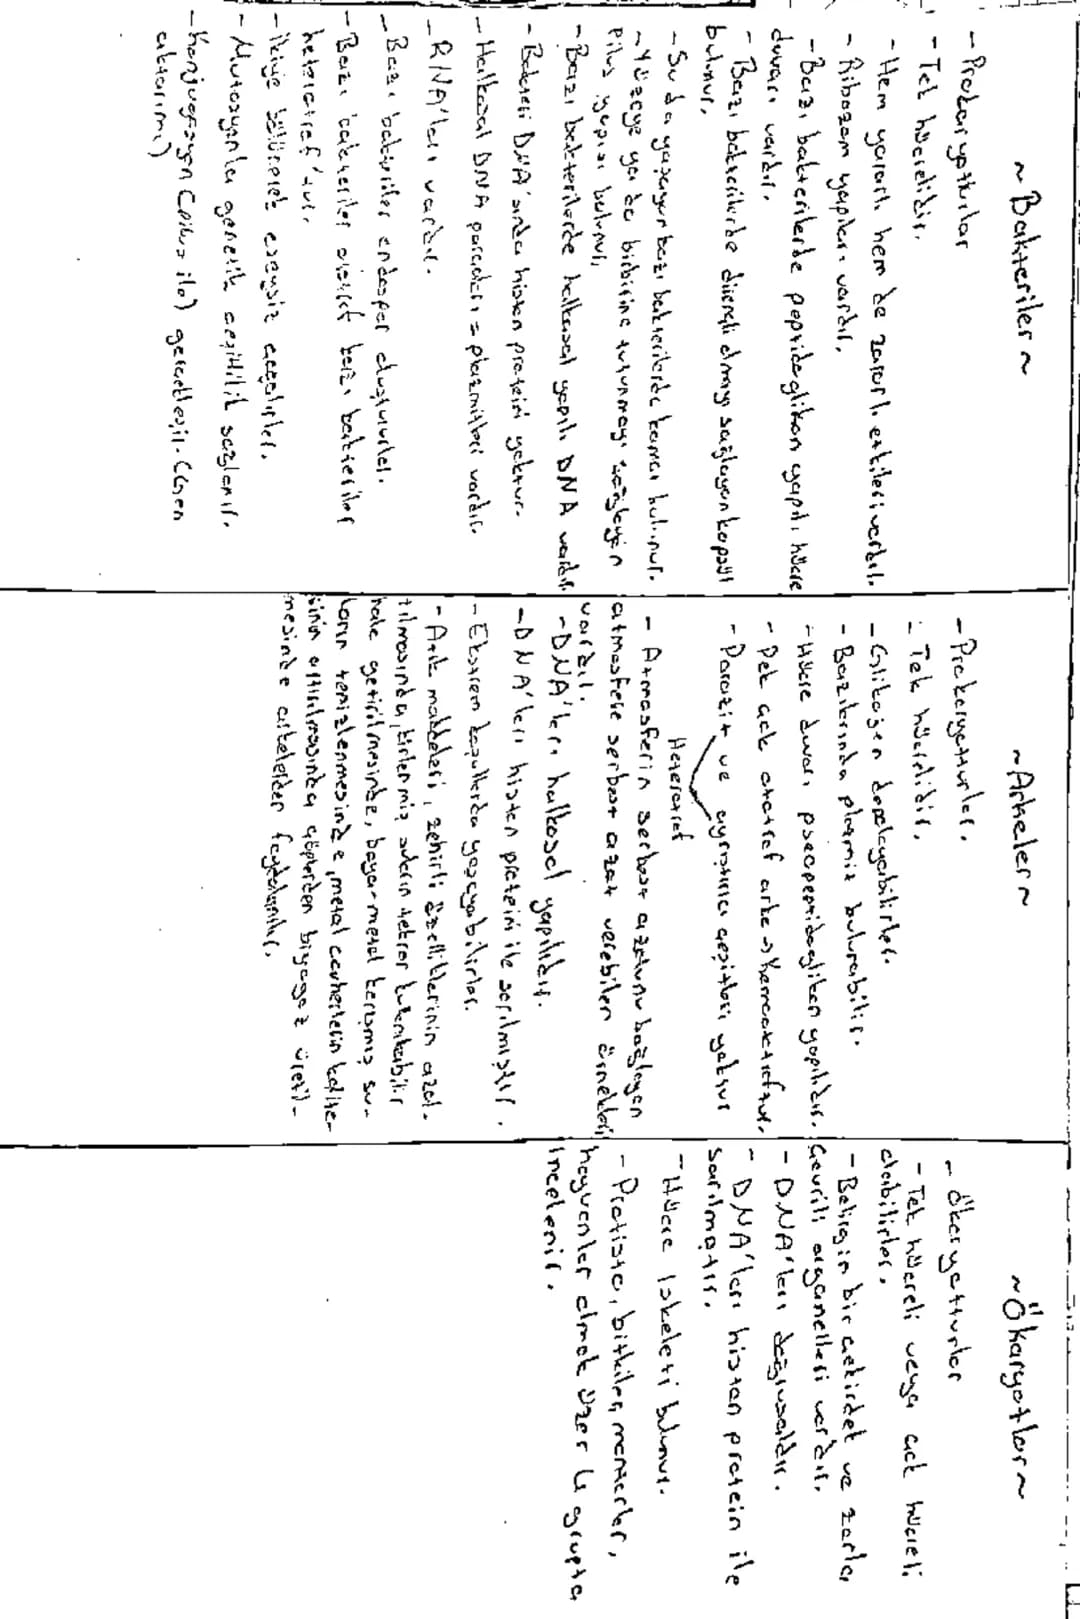 ~ Bakteriler ~
- Prokaryottular
- Tek hücrelidir.
- Hem yararlı hem de zararlı etkileri vardır.
- Ribozom yapıları vardır.
- Bazı bakterilerde peptidoglikan yapılı hücre
duvarı vardır.
- Bazı bakterilerde dirençli olmayı sağlayan kapsül
bulunur.
- Suda yaşayan bazı bakterilerde kamçı bulunur.
- Yüzeye ya da birbirine tutunmayı sağlayan
pilus yapısı bulunur.
- Bazı bakterilerde halkasal yapılı DNA vardır.
- Bakteri DNA'sında histon proteini yoktur.
- Halkasal DNA parçaları = plazmitleri vardır.
- RNA'ları vardır.
- Bazı bakteriler endospor oluştururlar.
- Bazı bakteriler ototrof bazı bakteriler
heterotrof'tur.
- İkiye bölünerek eşeysiz çoğalırlar.
- Mutasyonla genetik çeşitlilik sağlanır.
- Konjugasyon (pilus ile) gerçekleşir. (Gen
aktarımı)
~ Arkeler ~
- Prokaryotturlar.
- Tek hücrelidir.
- Glikojen depolayabilirler.
- Bazılarında plazmit bulunabilir.
- Hücre duvarı pseopeptidoglikan yapılıdır.
- Pek çok ototrof arke → kemoototroftur.
- Parazit ve ayrıştırıcı çeşitleri yoktur
Heterotrof
- Atmosferin serbest azotunu bağlayan
atmosfere serbest azot verebilen örnekleri
vardır.
- DNA'ları halkasal yapılıdır.
- DNA'ları histon proteini ile sarılmıştır.
- Ekstrem koşullarda yaşayabilirler.
- Atık maddeleri, zehirli özelliklerinin azal-
tılmasında, kirlenmiş suların tekrar kullanılabilir
hale getirilmesinde, boyar-metal karışmış su-
ların temizlenmesinde, metal cevherlerin kalite-
sinin arttırılmasında çöplerden biyogaz üretil-
mesinde arkelerden faydalanılır.
~ Ökaryotlar ~
- Ökaryotturlar
- Tek hücreli veya çok hücreli
olabilirler.
- Belirgin bir çekirdek ve zarla
çevrili organelleri vardır.
- DNA'ları doğrusaldır.
- DNA'ları histon protein ile
sarılmıştır.
- Hücre İskeleti bulunur.
- Protista, bitkiler, mantarlar,
hayvanlar olmak üzere 4 grupta
incelenir.